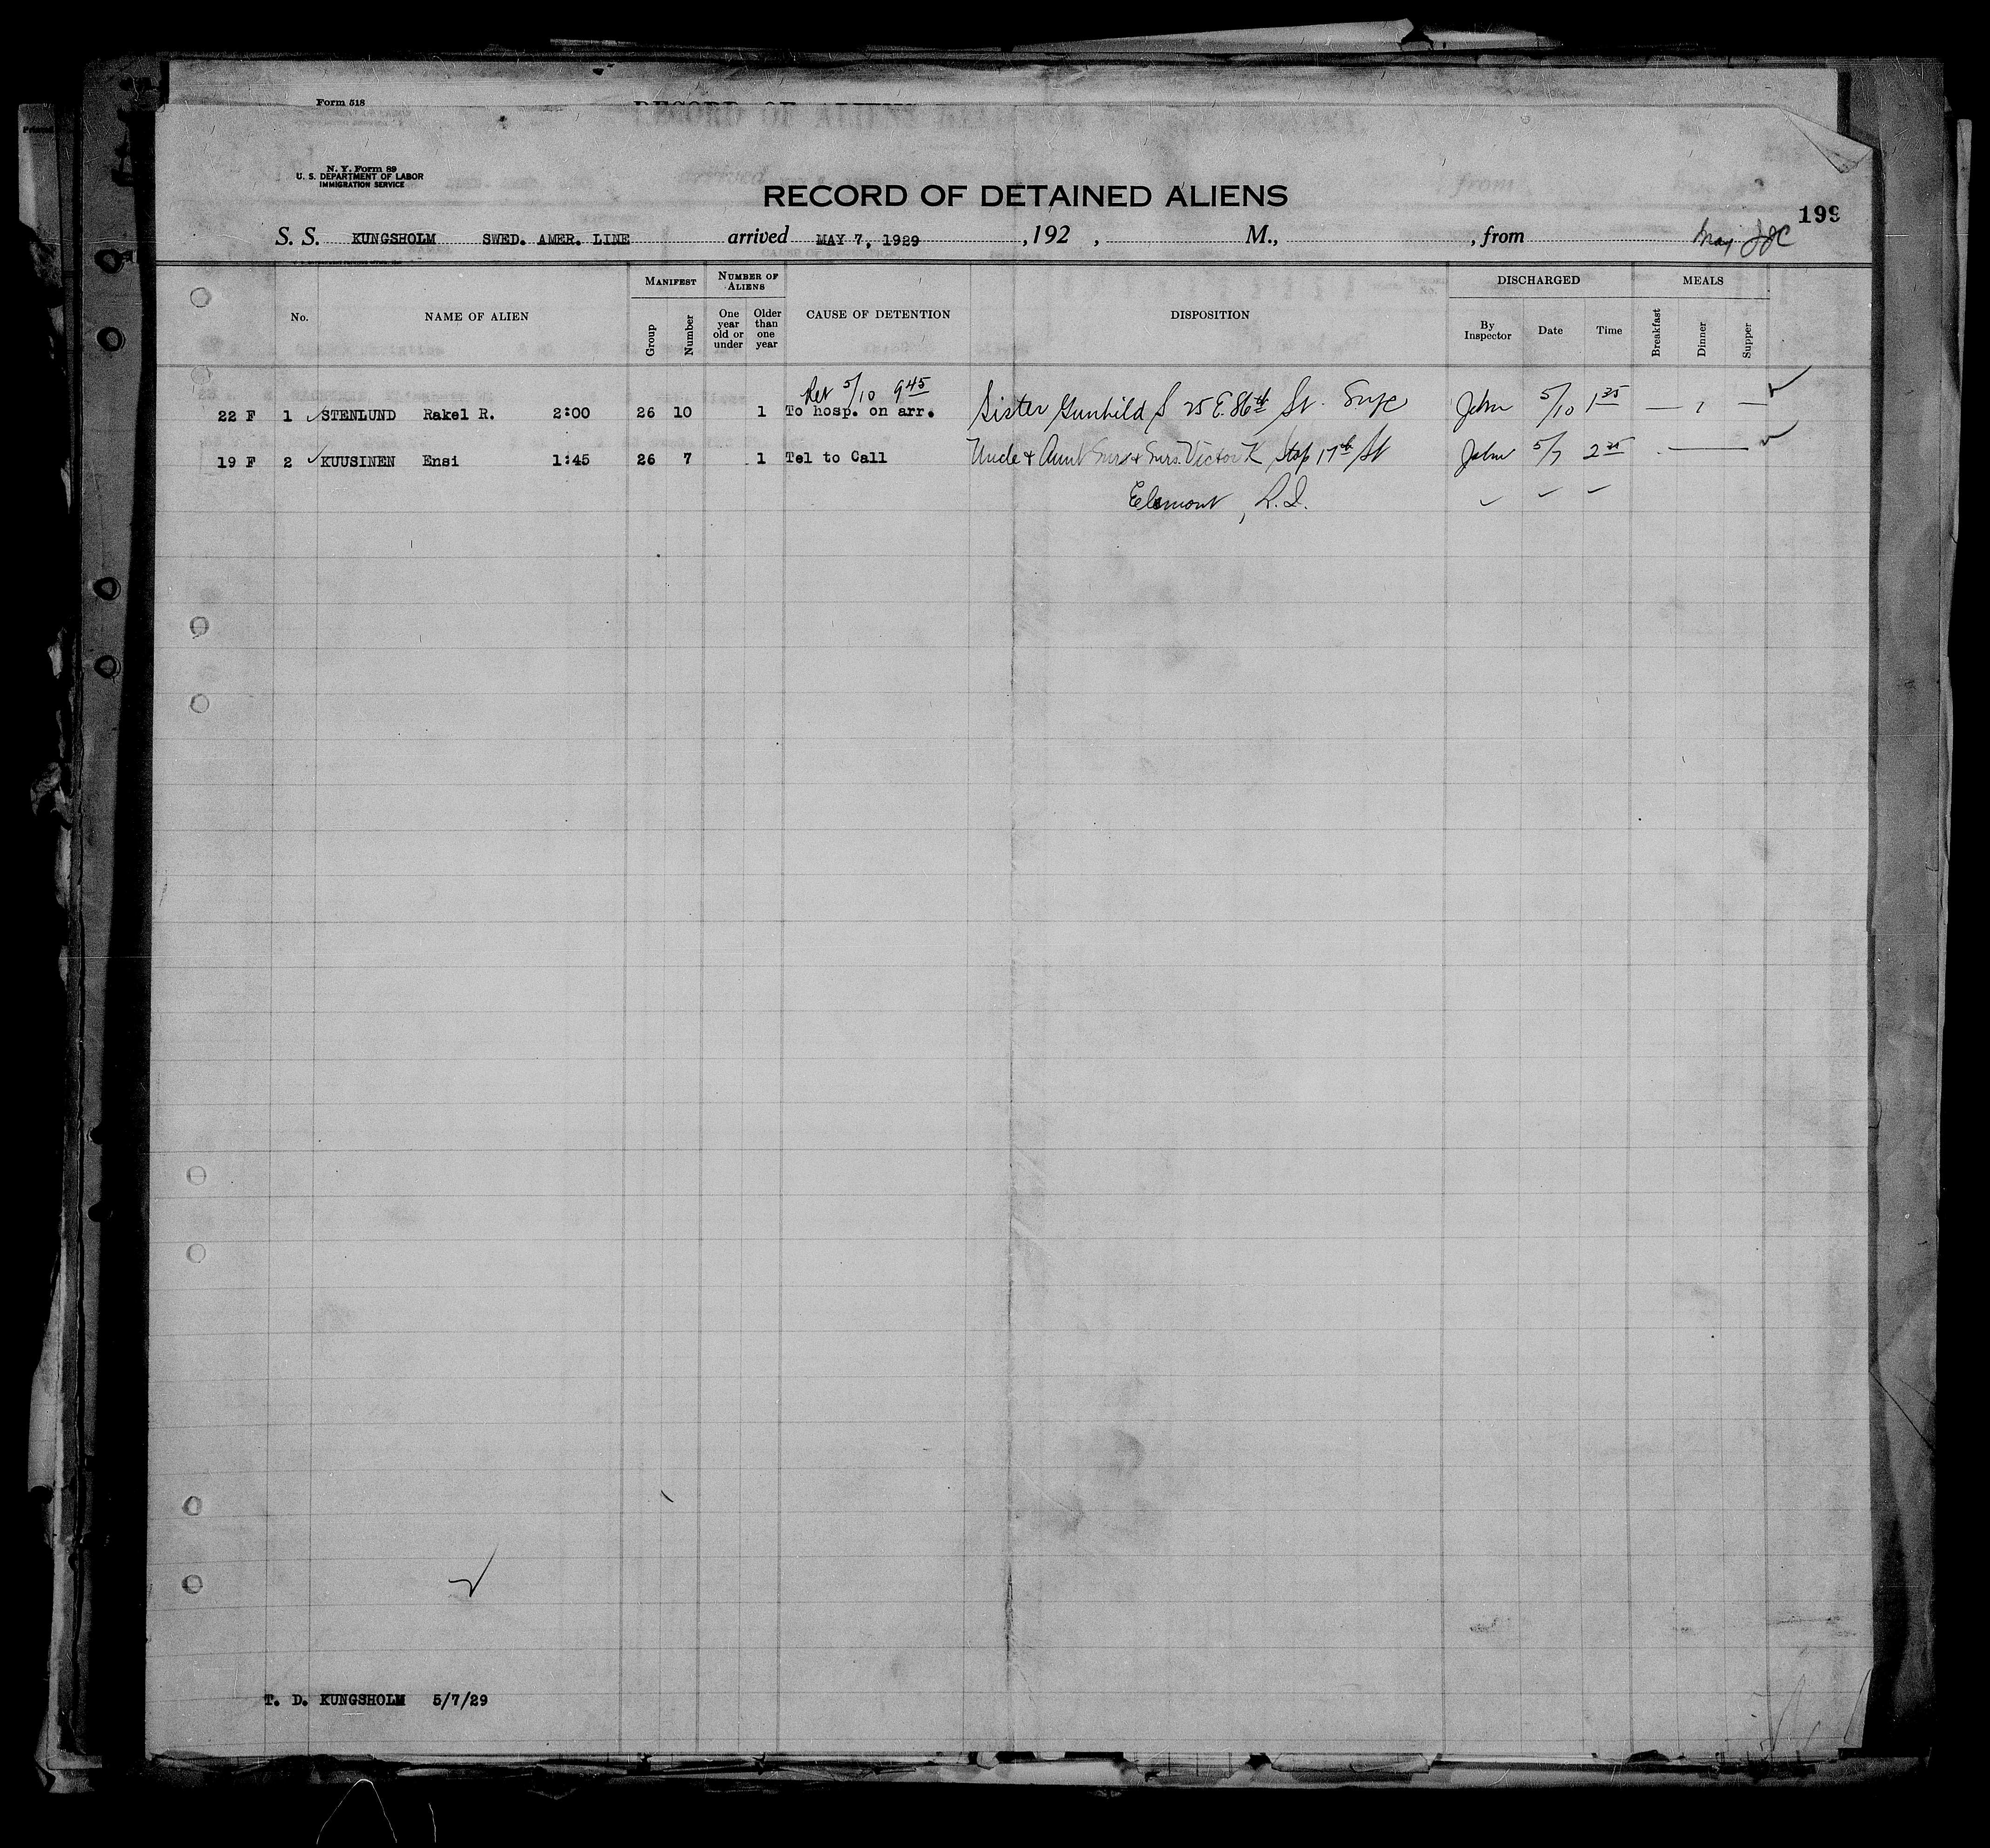 Form 518
N. Y. Form 89
U. S. DEPARTMENT OF LABOR
IMMIGRATION SERVICE
RECORD OF DETAINED ALIENS
199
S. S. KUNGSHOLM SWED. AMER. LINE arrived MAY 7, 1929 , 192 , M., , from
No. NAME OF ALIEN MANIFEST Group Number NUMBER OF ALIENS One year old or under Older than one year CAUSE OF DETENTION DISPOSITION DISCHARGED By Inspector Date Time MEALS Breakfast Dinner Supper
Ret 5/10 9 45
22 F 1 ✓ STENLUND Rakel R. 2:00 26 10 1 To hosp. on arr. Sister Gunhild S 25 E. 86th St. NYC John 5/10 1 35 — 1 — ✓
19 F 2 ✓ KUUSINEN Ensi 1:45 26 7 1 Tel to Call Uncle & Aunt Mr & Mrs. Victor K Stop 17th St John 5/7 2 35 — ✓
Elemont, L.I. ✓ ✓ ✓
T. D. KUNGSHOLM 5/7/29